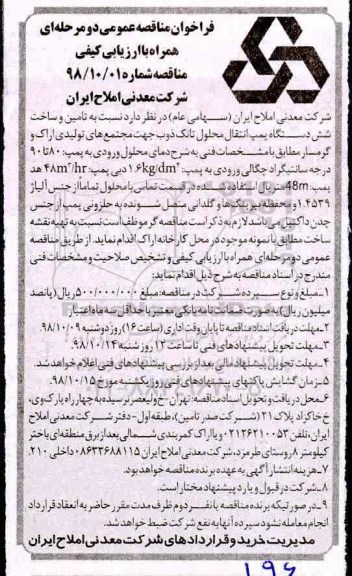 فراخوان مناقصه عمومی دو مرحله‌ای
همراه با ارزیابی کیفی
مناقصه شماره ۹۸/۱۰/۰۱
شرکت معدنی املاح ایران
شرکت معدنی املاح ایران (سهامی عام) در نظر دارد نسبت به تامین و ساخت
شش دستگاه پمپ انتقال محلول تانک ذوب جهت مجتمع‌های تولیدی اراک و
گرمسار مطابق با مشخصات فنی به شرح دمای محلول ورودی به پمپ: ۸۰ تا ۹۰
درجه سانتیگراد چگالی ورودی به پمپ: ۱.۶kg/dm³ دبی پمپ: ۴۸m³/hr هد
پمپ: 48m متریال استفاده شده در قسمت تماس با محلول تماماً از جنس آلیاژ
۱.۴۵۳۹ و محفظه بیرینگ‌ها و گلدانی متصل شونده به حلزونی پمپ از جنس
چدن داکتیل می باشد لازم به ذکر است مناقصه گر موظف است نسبت به تهیه نقشه
ساخت مطابق با نمونه موجود در محل کارخانه اراک اقدام نماید. از طریق مناقصه
عمومی دو مرحله‌ای همراه با ارزیابی کیفی و تشخیص صلاحیت و مشخصات فنی
مندرج در اسناد مناقصه به شرح ذیل اقدام نماید:
۱ـ مبلغ و نوع سپرده شرکت در مناقصه: مبلغ ۵۰۰/۰۰۰/۰۰۰ ریال (پانصد
میلیون ریال) به صورت ضمانت نامه بانکی معتبر با حداقل سه ماه اعتبار
۲ـ مهلت دریافت اسناد مناقصه تا پایان وقت اداری (ساعت ۱۶) روز دوشنبه ۹۸/۱۰/۰۹
۳ـ مهلت تحویل پیشنهادهای فنی تا ساعت ۱۲ روز شنبه ۹۸/۱۰/۱۴
۴ـ مهلت تحویل پیشنهاد مالی بعد از بررسی پیشنهادهای فنی اعلام خواهد شد.
۵ـ زمان گشایش پاکتهای پیشنهادهای فنی روز یکشنبه مورخ ۹۸/۱۰/۱۵
۶ـ محل دریافت و تحویل اسناد مناقصه: تهران- خ ولیعصر نرسیده به چهار راه پارک وی،
خ خاکزاد پلاک ۲۱ (شرکت صدر تامین)، طبقه اول- دفتر شرکت معدنی املاح
ایران، تلفن ۰۲۱۲۶۲۱۰۰۵۳ و یا اراک کمربندی شمالی بعد از برق منطقه‌ای باختر
کیلومتر ۸ روستای طرمزد، شرکت معدنی املاح ایران ۰۸۶۳۳۶۸۸۱۱۵ داخلی ۲۱۰
۷ـ هزینه انتشار آگهی به عهده برنده مناقصه خواهد بود.
۸ـ شرکت در قبول و یا رد پیشنهاد مختار است.
۹ـ در صورتیکه برنده مناقصه یا نفر دوم ظرف مدت مقرر حاضر به انعقاد قرارداد
انجام معامله نشود سپرده آنها به نفع شرکت ضبط خواهد شد.
مدیریت خرید و قراردادهای شرکت معدنی املاح ایران
۱۹۶